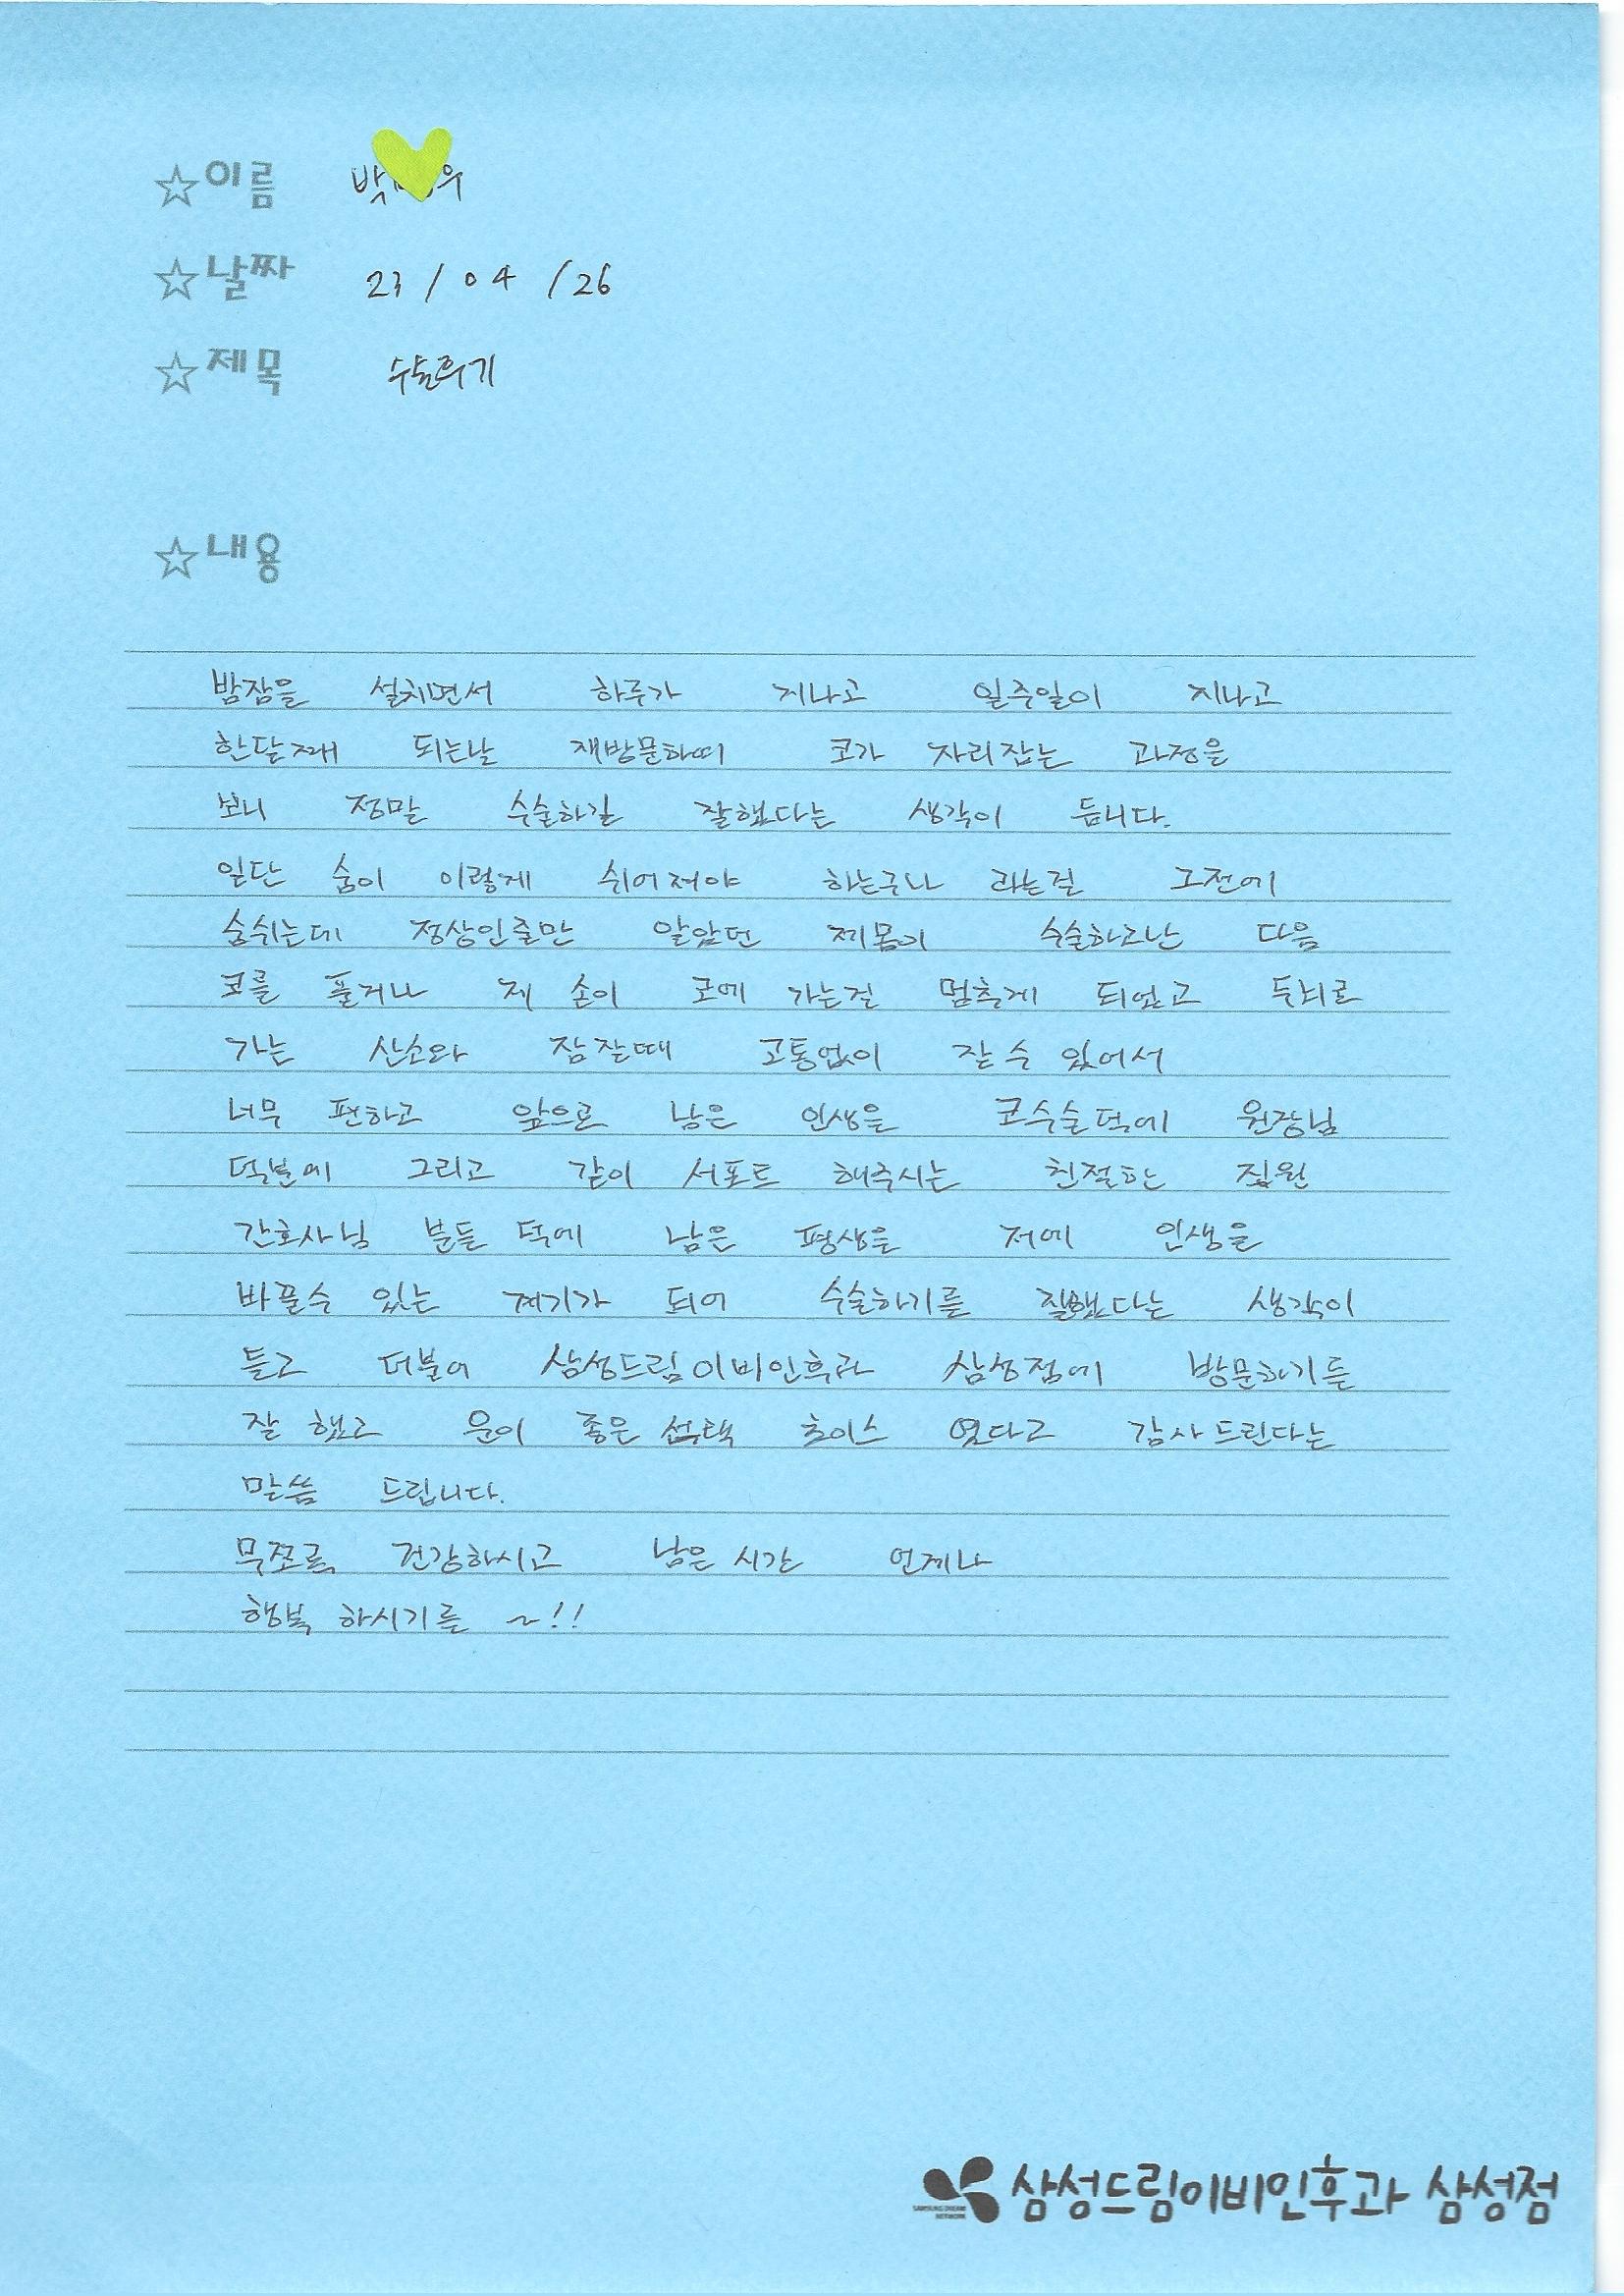 ☆이름 박 우
☆날짜 23 / 04 / 26
☆제목 수술후기
☆내용
밤잠을 설치면서 하루가 지나고 일주일이 지나고
한달째 되는날 재방문하며 코가 자리잡는 과정을
보니 정말 수술하길 잘했다는 생각이 듭니다.
일단 숨이 이렇게 쉬어져야 하는구나 라는걸 그전에
숨쉬는데 정상인줄만 알았던 제몸이 수술하고난 다음
코를 풀거나 제 손이 코에 가는걸 멈추게 되었고 두뇌로
가는 산소와 잠잘때 고통없이 잘수 있어서
너무 편하고 앞으로 남은 인생을 코수술덕에 원장님
덕분에 그리고 같이 서포트 해주시는 친절한 직원
간호사님 분들 덕에 남은 평생을 저에 인생을
바꿀수 있는 계기가 되어 수술하기를 잘했다는 생각이
들고 더불어 삼성드림이비인후과 삼성점에 방문하기를
잘 했고 운이 좋은 선택 초이스 였다고 감사드린다는
말씀 드립니다.
무쪼록 건강하시고 남은 시간 언제나
행복 하시기를 ~!!
SAMSUNG DREAM NETWORK 삼성드림이비인후과 삼성점